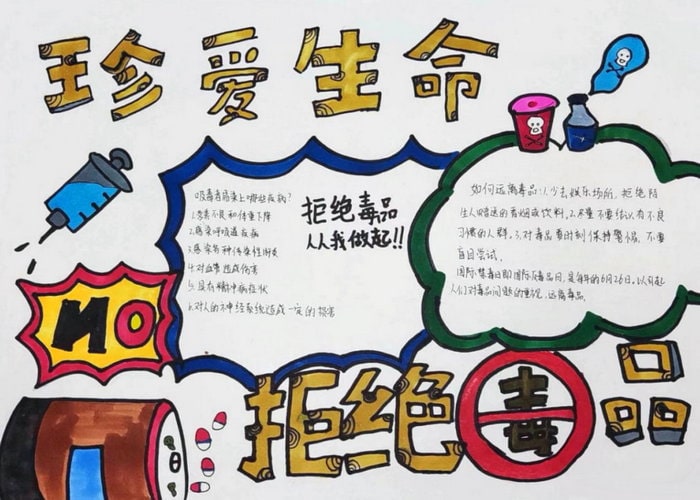 珍爱生命
吸毒者易染上哪些疾病?
1.营养不良和体重下降
2.感染呼吸道疾病
3.感染各种传染性肝炎
4.对血管造成伤害
5.具有精神病症状
6.对人的神经系统造成一定的损害
拒绝毒品
从我做起!!
如何远离毒品:1.少去娱乐场所,拒绝陌
生人赠送的香烟或饮料,2.尽量不要结识有不良
习惯的人群,3.对毒品要时刻保持警惕,不要
盲目尝试。
国际禁毒日即国际反毒品日,是每年的6月26日,以引起
人们对毒品问题的重视,远离毒品。
NO
拒绝毒品